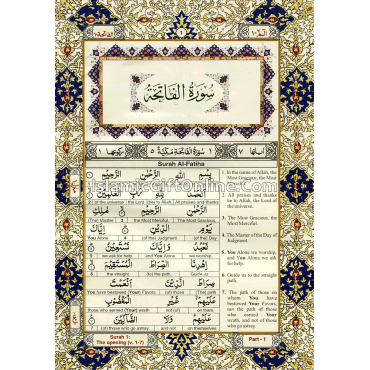 الفاتحة ١
١
الم ١
سُورَةُ الْفَاتِحَةِ
اٰياتها ٧
١ سورة الفاتحة مكية ٥
ركوعها ١
Surah Al-Fatiha
IslamicGiftonline.Com
بِسْمِ اللّٰهِ الرَّحْمٰنِ الرَّحِيْمِ
2 (of) the universe the Lord to Allah All praises and thanks
الرَّحْمٰنِ الرَّحِيْمِ مٰلِكِ
(The) Master 3 the Most Merciful. The Most Gracious,
يَوْمِ الدِّيْنِ اِيَّاكَ
You Alone 4 (of the) Judgment (of the) Day
نَعْبُدُ وَاِيَّاكَ نَسْتَعِيْنُ
5 we ask for help. and You Alone we worship,
اِهْدِنَا الصِّرَاطَ الْمُسْتَقِيْمَ
6 the straight. (to) the path, Guide us
صِرَاطَ الَّذِيْنَ اَنْعَمْتَ
You have bestowed (Your) Favors (of) those (The) path
عَلَيْهِمْ غَيْرِ الْمَغْضُوْبِ
those who earned (Your) wrath not (of) on them,
عَلَيْهِمْ وَلَا الضَّآلِّيْنَ
7 (of) those who go astray. and not on themselves
1. In the name of Allah, the
Most Gracious, the Most
2. All praises and thanks
be to Allah, the Lord of
the universe.
3. The Most Gracious, the
Most Merciful.
4. The Master of the Day of
Judgment.
5. You Alone we worship,
and You Alone we ask
for help.
6. Guide us to the straight
path.
7. The path of those on
whom You have
bestowed Your Favors,
not the path of those
who earned Your
wrath, and not of those
who go astray.
Surah 1:
The opening (v. 1-7)
Part - 1